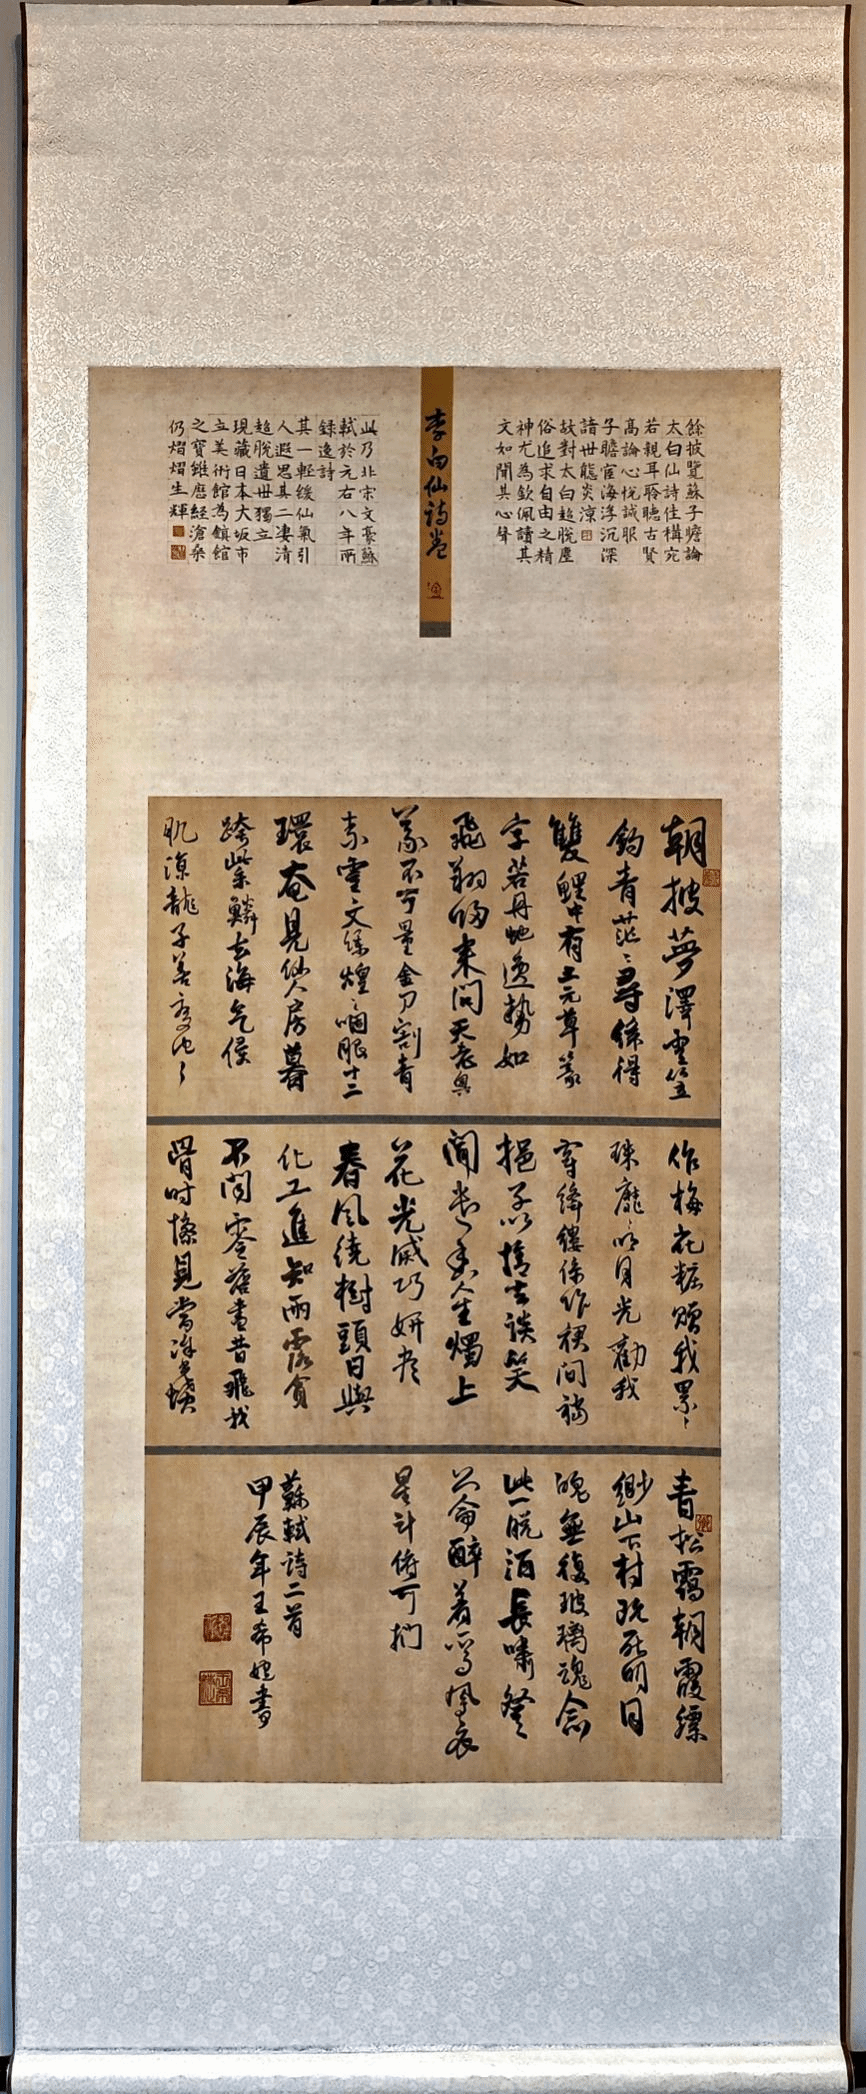 餘披覽蘇子瞻論
太白仙詩佳構宛
若親耳聆聽古賢
高論心悅誠服
子瞻宦海浮沉深
諳世態炎涼
故對太白超脫塵
俗追求自由之精
神尤為欽佩讀其
文如聞其心聲
李白仙詩卷
此乃北宋文豪蘇
軾於元右八年所
録逸詩
其一輕緩仙氣引
人遐思其二淒清
超脫遺世獨立
現藏日本大坂市
立美術館為鎮館
之寶雖歷經滄桑
仍熠熠生輝
朝披夢澤雲笠
釣青茫々尋絲得
雙鯉中有三元章篆
字若丹虵逸勢如
飛翔歸來問天老奧
義不可量金刀割青
素靈文爛煌々咽服十二
環奄見仙人房暮
跨紫鱗去海气侵
肌涼龍子善變化々
作梅花粧贈我累々
珠靡々明月光勸我
穿絳縷係作裙間襠
挹子以攜去談笑
聞遺香人生燭上
花光滅巧妍盡
春風繞樹頭日與
化工進知雨露貪
不聞零落昔飛我
骨時慘見當塗墳
青松靄朝霞縹
緲山下村既死明月
魄無復玻璃魂念
此一脫洒長嘯登
崑崙醉著鸞鳳衣
星斗俯可捫
蘇軾詩二首
甲辰年王希 書